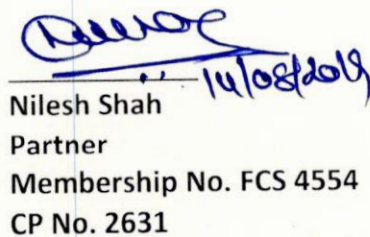 14/08/2019
Nilesh Shah
Partner
Membership No. FCS 4554
CP No. 2631